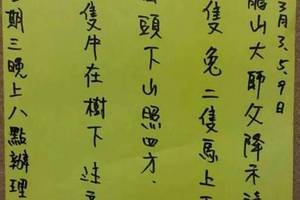 3月3.5.9日
山大師父降示
隻兔二隻馬上
頭下山照四方.
隻牛在樹下
期三晚上八點辦理